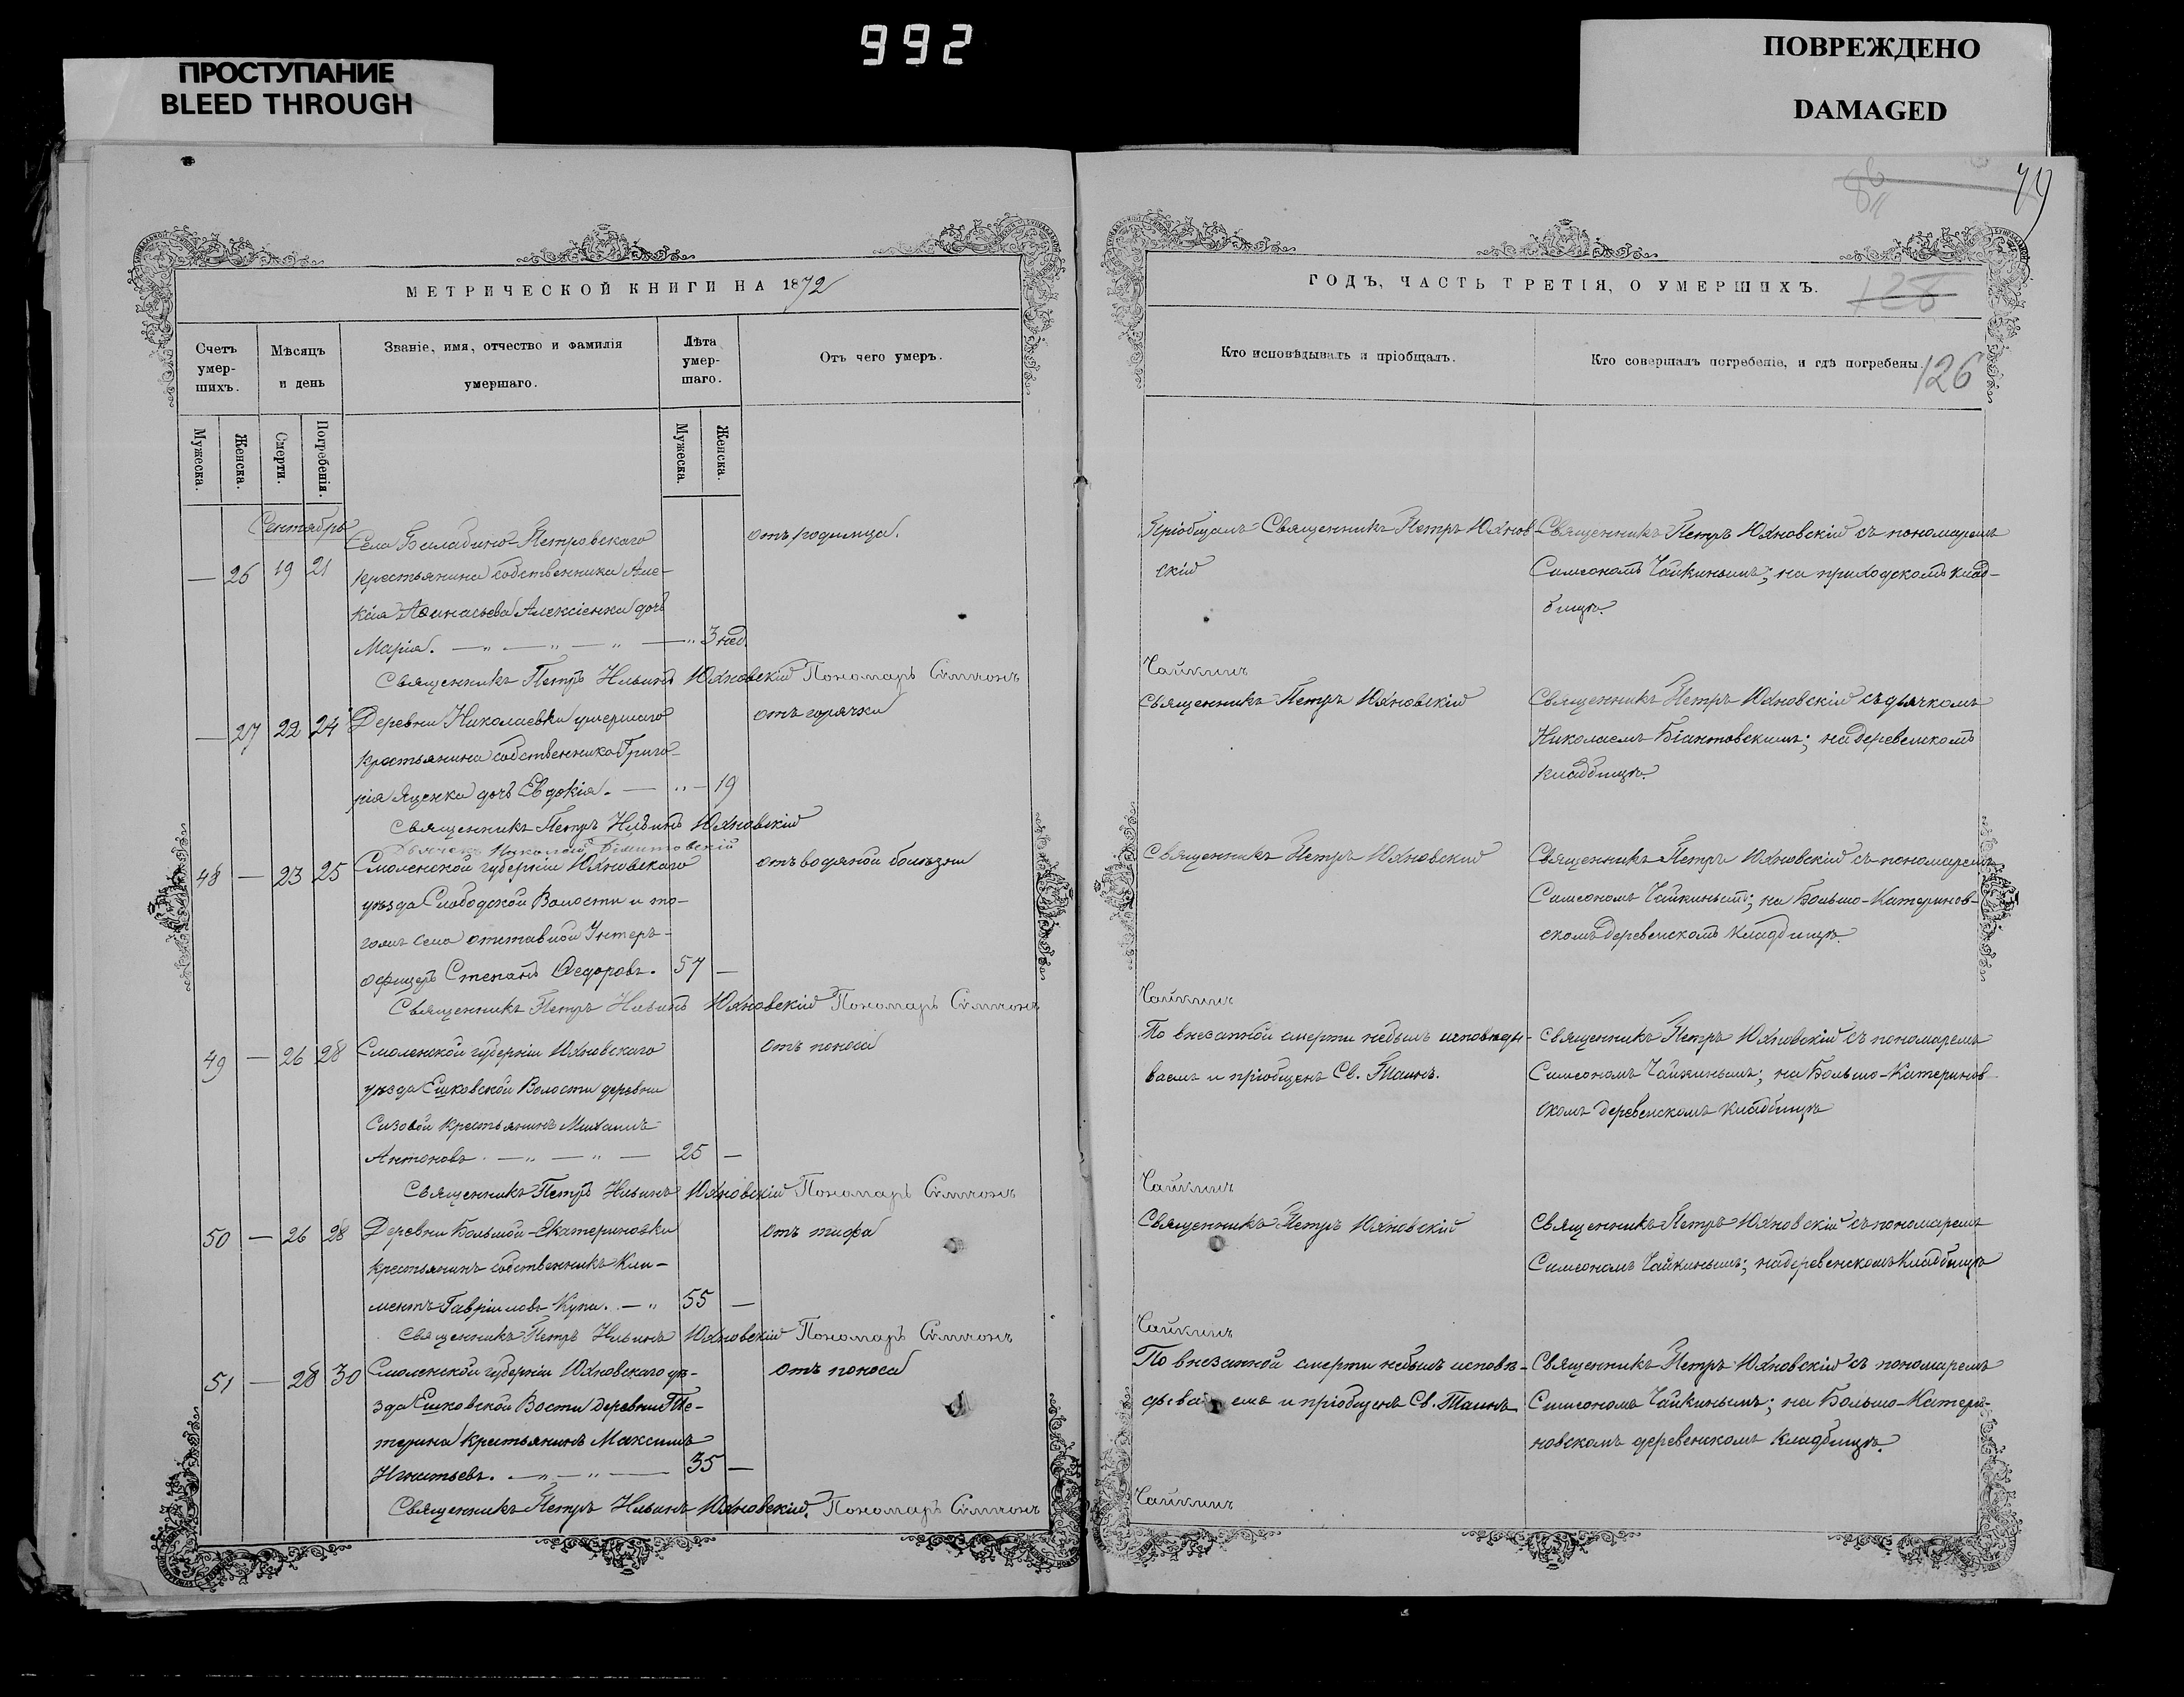 992
ПРОСТУПАНИЕ
BLEED THROUGH
ПОВРЕЖДЕНО
DAMAGED
79
86
МЕТРИЧЕСКОЙ КНИГИ НА 1872
Счетъ умер-шихъ.
Мѣсяцъ и день
Званіе, имя, отчество и фамилія умершаго.
Лѣта умер-шаго.
Отъ чего умеръ.
Мужеска.
Женска.
Смерти.
Погребенія.
Мужеска.
Женска.
Сентябрь
Села Петровскаго
отъ родимца.
— 26 19 21 крестьянина собственника Але-
ксія Аѳанасьева Алексіенка дочь
Марія. — „ — „ — „ — „ 3 нед.
Священникъ Петръ Ильинъ Юхновскій Пономарь Сѵмеонъ
— 27 22 24 Деревни Николаевки умершаго
отъ горячки
крестьянина собственника Григо-
рія Яценка дочь Евдокія. — „ — 19
Священникъ Петръ Ильинъ Юхновскій
Дьячекъ Николай
48 — 23 25 Смоленской губерніи Юхновскаго
отъ водяной болѣзни
уѣзда Слободской Волости и то-
гожъ села отставной Унтеръ-
офицеръ Степанъ Ѳедоровъ. 57 —
Священникъ Петръ Ильинъ Юхновскій Пономарь Сѵмеонъ
49 — 26 28 Смоленской губерніи Юхновскаго
отъ поноса
уѣзда Ешковской Волости деревни
Сизовой крестьянинъ Михаилъ
Антоновъ. — „ — „ — 25 —
Священникъ Петръ Ильинъ Юхновскій Пономарь Сѵмеонъ
50 — 26 28 Деревни Большой-Екатериновки
отъ тифа
крестьянинъ собственникъ Кли-
ментъ Гавріиловъ Купа. — „ 55 —
Священникъ Петръ Ильинъ Юхновскій Пономарь Сѵмеонъ
51 — 28 30 Смоленской губерніи Юхновскаго уѣ-
отъ поноса
зда Ешковской Вости деревни Те-
терина крестьянинъ Максимъ
Игнатьевъ. — „ — „ — 35 —
Священникъ Петръ Ильинъ Юхновскій. Пономарь Сѵмеонъ
ГОДЪ, ЧАСТЬ ТРЕТІЯ, О УМЕРШИХЪ.
128
Кто исповѣдывалъ и пріобщалъ.
Кто совершалъ погребеніе, и гдѣ погребены.
126
Пріобщалъ Священникъ Петръ Юхнов-
скій
Священникъ Петръ Юхновскій съ пономаремъ
Симеономъ Чайкинымъ; на приходскомъ клад-
бищѣ.
Чайкинъ
Священникъ Петръ Юхновскій
Священникъ Петръ Юхновскій съ дьячкомъ
Николаемъ; на деревенскомъ
кладбищѣ.
Священникъ Петръ Юхновскій
Священникъ Петръ Юхновскій съ пономаремъ
Симеономъ Чайкинымъ; на Больше-Катеринов-
скомъ деревенскомъ кладбищѣ.
Чайкинъ
По внезапной смерти небылъ исповѣды-
ваемъ и пріобщенъ Св. Таинъ.
Священникъ Петръ Юхновскій съ пономаремъ
Симеономъ Чайкинымъ; на Больше-Катеринов-
скомъ деревенскомъ кладбищѣ
Чайкинъ
Священникъ Петръ Юхновскій
Священникъ Петръ Юхновскій съ пономаремъ
Симеономъ Чайкинымъ; на деревенскомъ кладбищѣ
Чайкинъ
По внезапной смерти небылъ исповѣ-
дываемъ и пріобщенъ Св. Таинъ
Священникъ Петръ Юхновскій съ пономаремъ
Симеономъ Чайкинымъ; на Больше-Катери-
новскомъ деревенскомъ кладбищѣ.
Чайкинъ